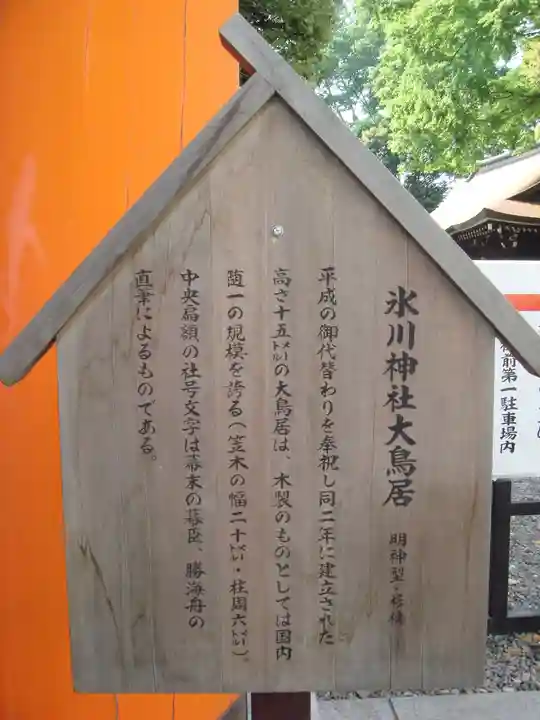 氷川神社大鳥居 明神型・杉
平成の御代替わりを奉祝し同二年に建立された
高さ十五㍍の大鳥居は、木製のものとしては国内
随一の規模を誇る(笠木の幅二十㍍・柱周六㍍)。
中央扁額の社号文字は幕末の幕臣、勝海舟の
直筆によるものである。
前第一駐車場内